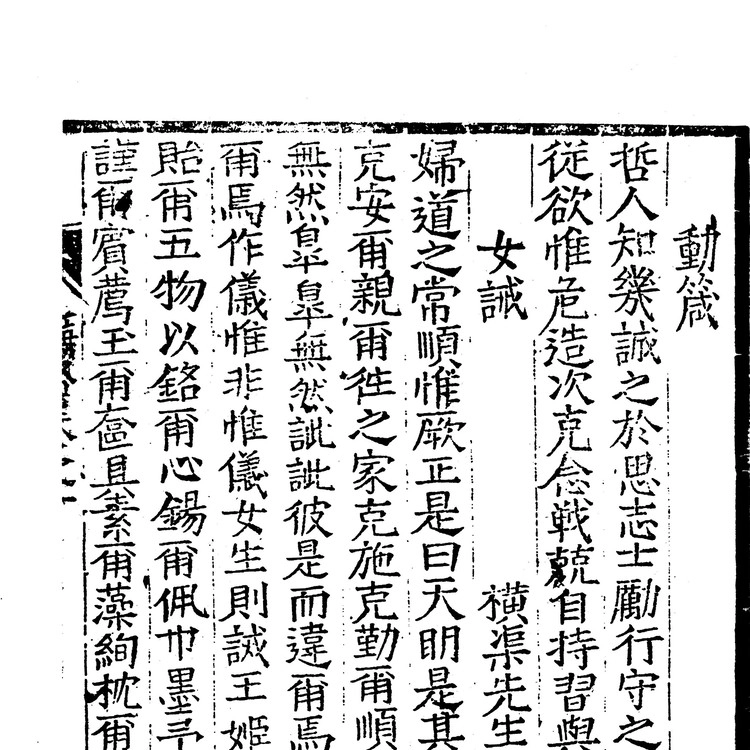 動箴
哲人知幾誠之於思志士勵行守之
從欲惟危造次克念戰兢自持習與
女誡 橫渠先生
婦道之常順惟厥正是曰天明是其
克安爾親爾徃之家克施克勤爾順
無然臯臯無然訿訿彼是而違爾焉
爾焉作儀惟非惟儀女生則誡王姬
貽爾五物以銘爾心錫爾佩巾墨予
謹爾賓薦玉爾奩具素爾藻絢枕爾